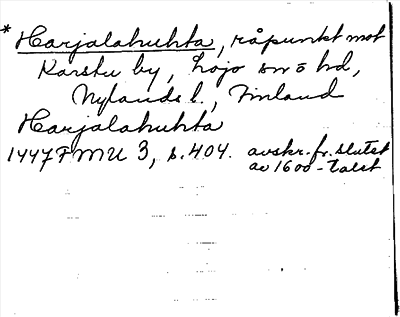 * Harjalahuhta, råpunkt mot
Karstu by, Lojo sn o hd,
Nylands l., Finland
Harjalahuhta
1447 FMU 3, s. 404. avskr. fr. slutet
av 1600-talet